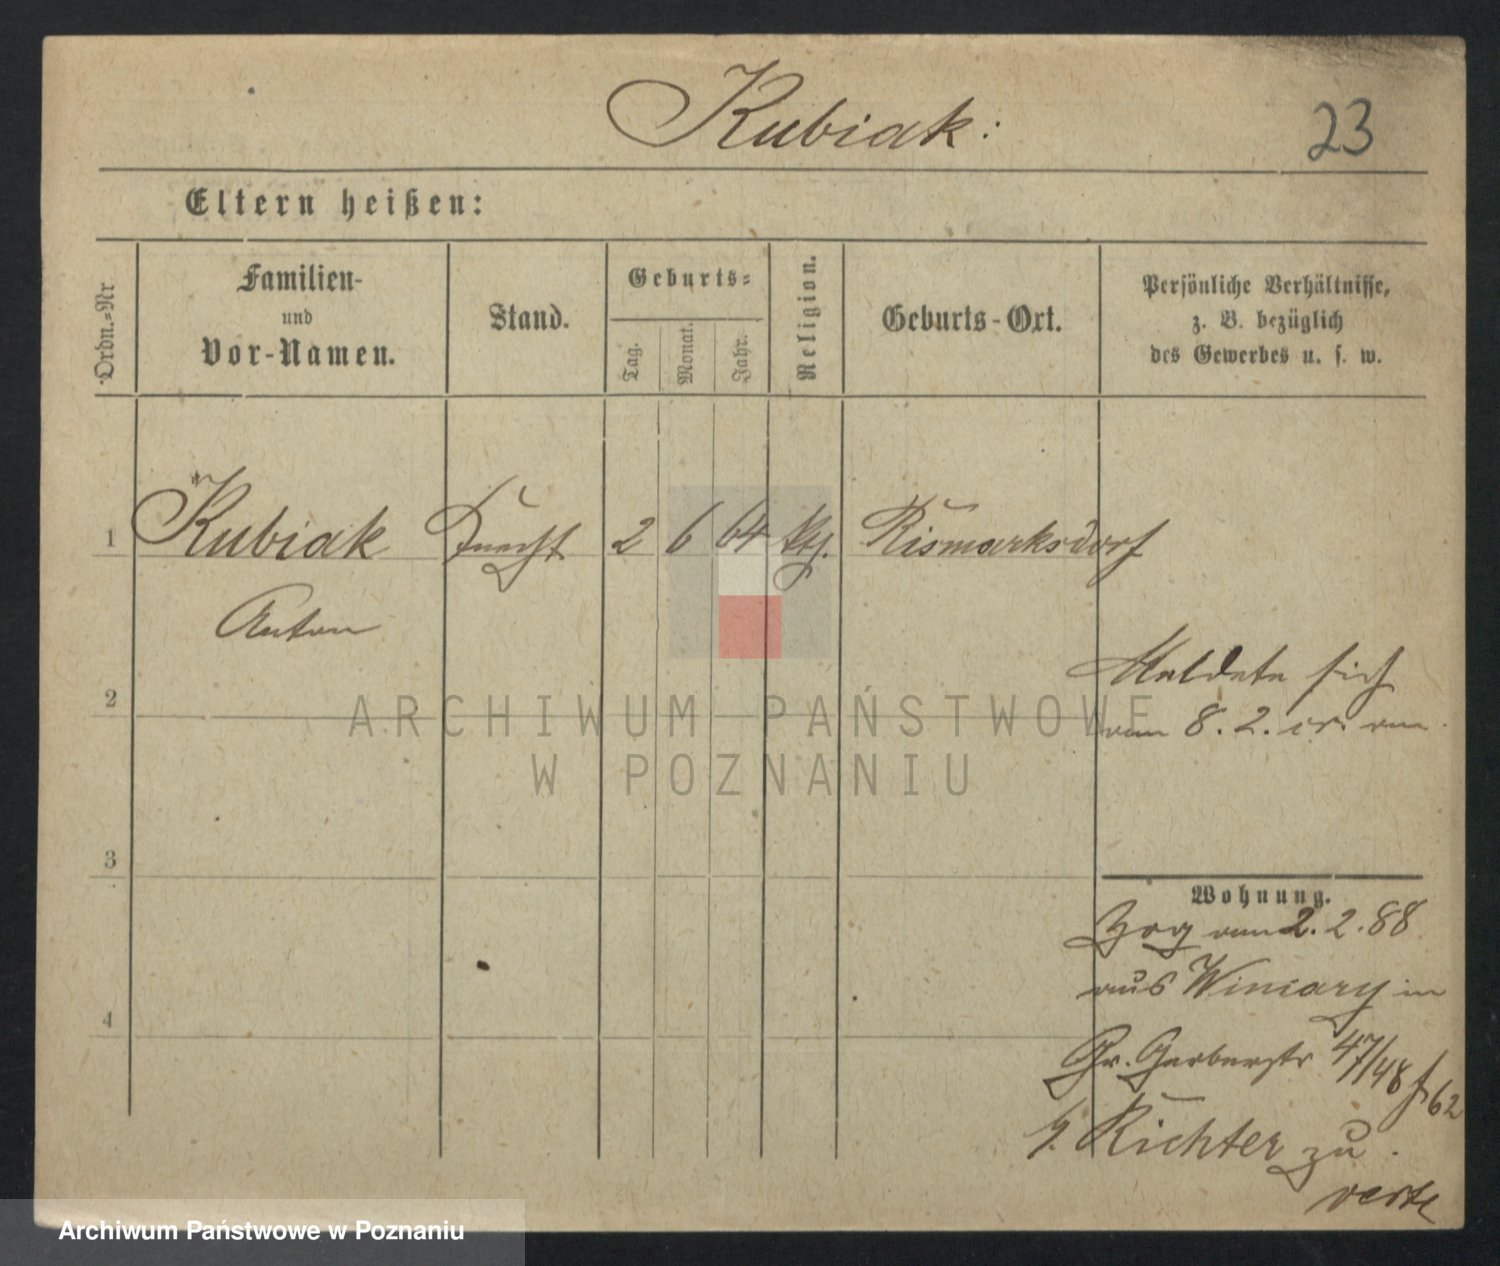 Kubiak:
23
Eltern heißen:
Ordn.=Nr.
Familien-
und
Vor-Namen.
Stand.
Geburts=
Tag.
Monat.
Jahr.
Religion.
Geburts-Ort.
Persönliche Verhältnisse,
z. B. bezüglich
des Gewerbes u. s. w.
1 Kubiak Knecht 2 6 64 kth. Bismarksdorf
Anton
Meldete sich
2
am 8. 2. cr. an.
ARCHIWUM PAŃSTWOWE
W POZNANIU
3
Wohnung.
Zog am 2. 2. 88
aus Winiary in
4
Gr. Gerberstr 47/48 f 62
z. Richter zu.
verte
Archiwum Państwowe w Poznaniu